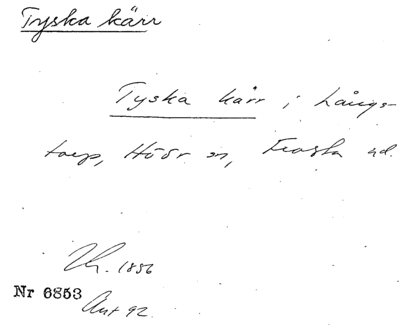 Tyska kärr
Tyska kärr i Långs-
torp, Höör sn, Frosta hd.
Th. 1856
Nr 6853
Ant 92.